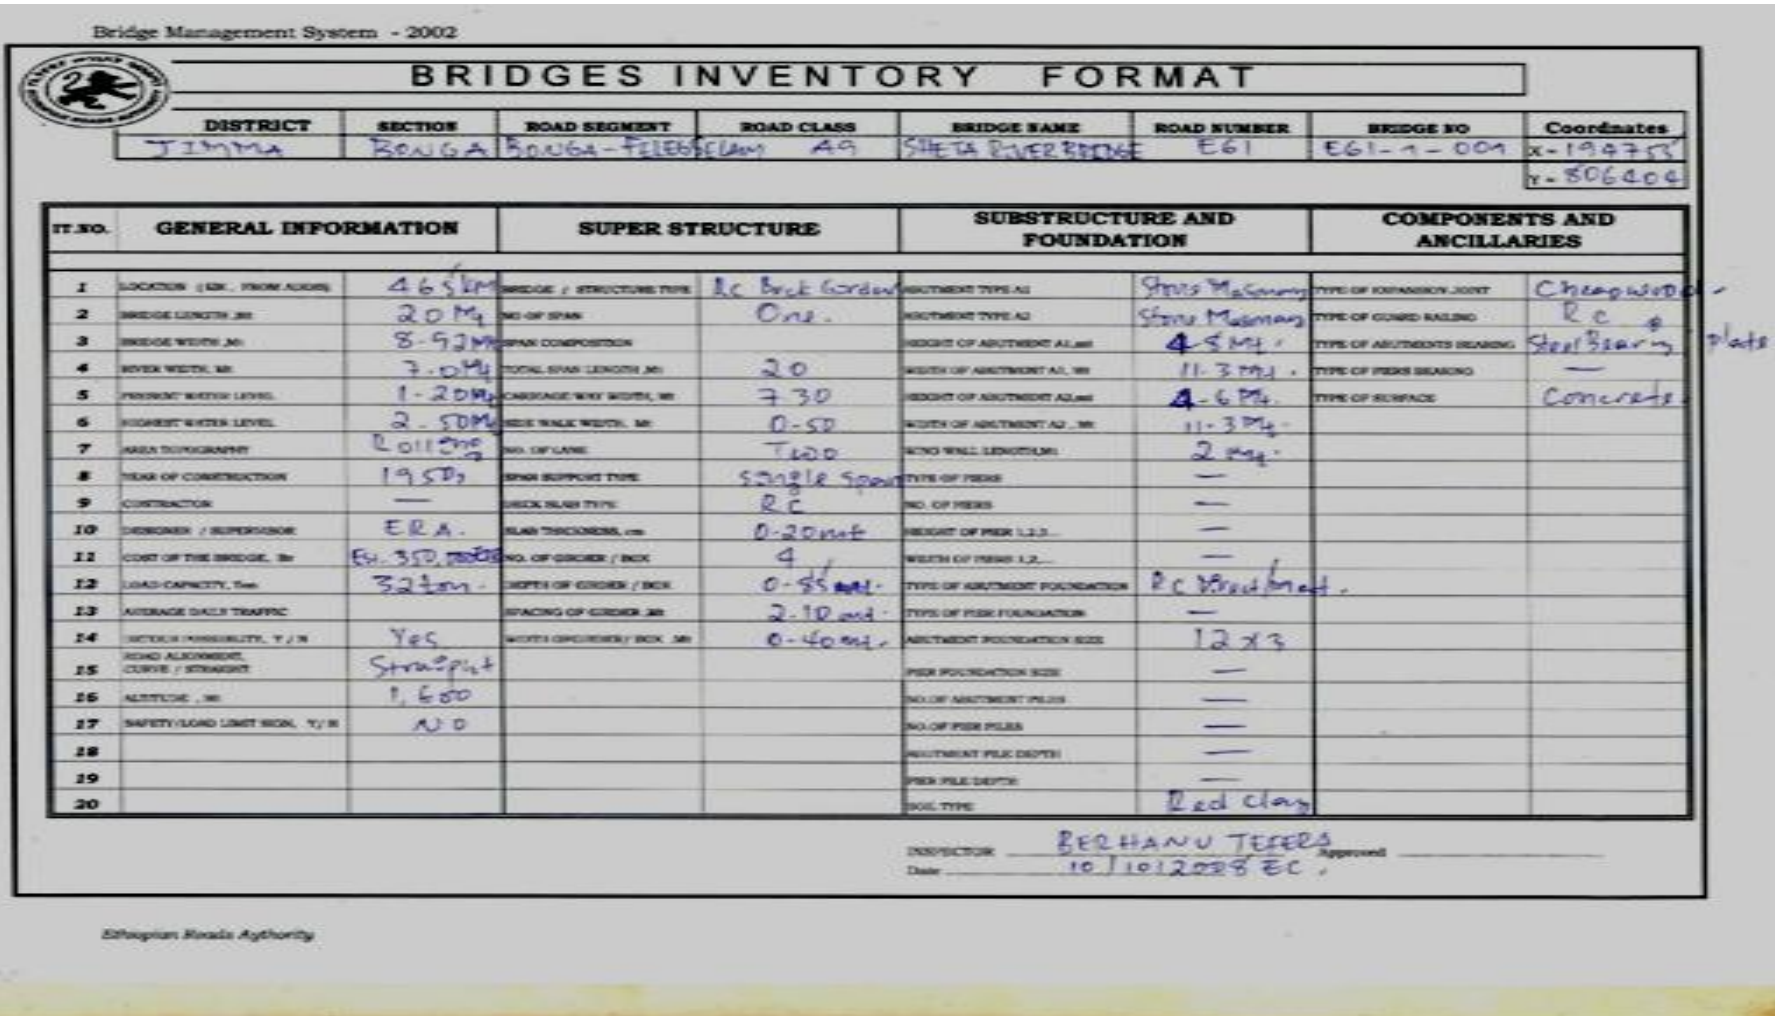 Bridge Management System - 2002
BRIDGES INVENTORY FORMAT
DISTRICT SECTION ROAD SEGMENT ROAD CLASS BRIDGE NAME ROAD NUMBER BRIDGE NO Coordnates
JIMMA BONGA BONGA-FELEGSELAM A9 SHETA RIVER BRIDGE E61 E61-1-001 X-194755
Y-806404
IT.NO. GENERAL INFORMATION SUPER STRUCTURE SUBSTRUCTURE AND FOUNDATION COMPONENTS AND ANCILLARIES
1 LOCATION (KM. FROM ADDIS) 465 KM BRIDGE / STRUCTURE TYPE Rc ABUTMENT TYPE A1 Stone Masonary TYPE OF EXPANSION JOINT
2 BRIDGE LENGTH, Mt 20 Mt NO OF SPAN One. ABUTMENT TYPE A2 Stone Masonary TYPE OF GUARD RAILING Rc
3 BRIDGE WIDTH, Mt 8-92 Mt SPAN COMPOSITION HEIGHT OF ABUTMENT A1, mt 4-8 Mt. TYPE OF ABUTMENTS BEARING Steel Bearing Plate
4 RIVER WIDTH, Mt 7.0 Mt TOTAL SPAN LENGTH, Mt 20 WIDTH OF ABUTMENT A1, Mt 11-3 Mt. TYPE OF PIERS BEARING —
5 PRESENT WATER LEVEL 1-20 Mt CARRIAGE WAY WIDTH, Mt 7.30 HEIGHT OF ABUTMENT A2, mt 4-6 Mt. TYPE OF SURFACE Concrete
6 HIGHEST WATER LEVEL 2-50 Mt SIDE WALK WIDTH, Mt 0-50 WIDTH OF ABUTMENT A2, Mt 11-3 Mt.
7 AREA TOPOGRAPHY Rolling NO. OF LANE Two WING WALL LENGTH, Mt 2 Mt.
8 YEAR OF CONSTRUCTION 1950s SPAN SUPPORT TYPE Single Span TYPE OF PIERS —
9 CONTRACTOR — DECK SLAB TYPE RC NO. OF PIERS —
10 DESIGNER / SUPERVISOR ERA. SLAB THICKNESS, cm 0-20 mt HEIGHT OF PIER 1,2,3... —
11 COST OF THE BRIDGE, Br NO. OF GIRDER / BOX 4 WIDTH OF PIERS 1,2,... —
12 LOAD CAPACITY, Ton 32 ton. DEPTH OF GIRDER / BOX 0-85 mt. TYPE OF ABUTMENT FOUNDATION Rc
13 AVERAGE DAILY TRAFFIC SPACING OF GIRDER, Mt 2-10 mt. TYPE OF PIER FOUNDATION —
14 DETOUR POSSIBILITY, Y / N Yes WIDTH OF GIRDER / BOX, Mt 0-40 mt. ABUTMENT FOUNDATION SIZE 12 x 3
15 ROAD ALIGNMENT, CURVE / STRAIGHT Straight PIER FOUNDATION SIZE —
16 ALTITUDE, Mt 1,600 NO.OF ABUTMENT PILES —
17 SAFETY/LOAD LIMIT SIGN, Y/N NO NO.OF PIER PILES —
18 ABUTMENT PILE DEPTH —
19 PIER PILE DEPTH —
20 SOIL TYPE Red Clay
INSPECTOR BERHANU TEFERA Approved
Date 10/10/2008 EC.
Ethiopian Roads Aythority